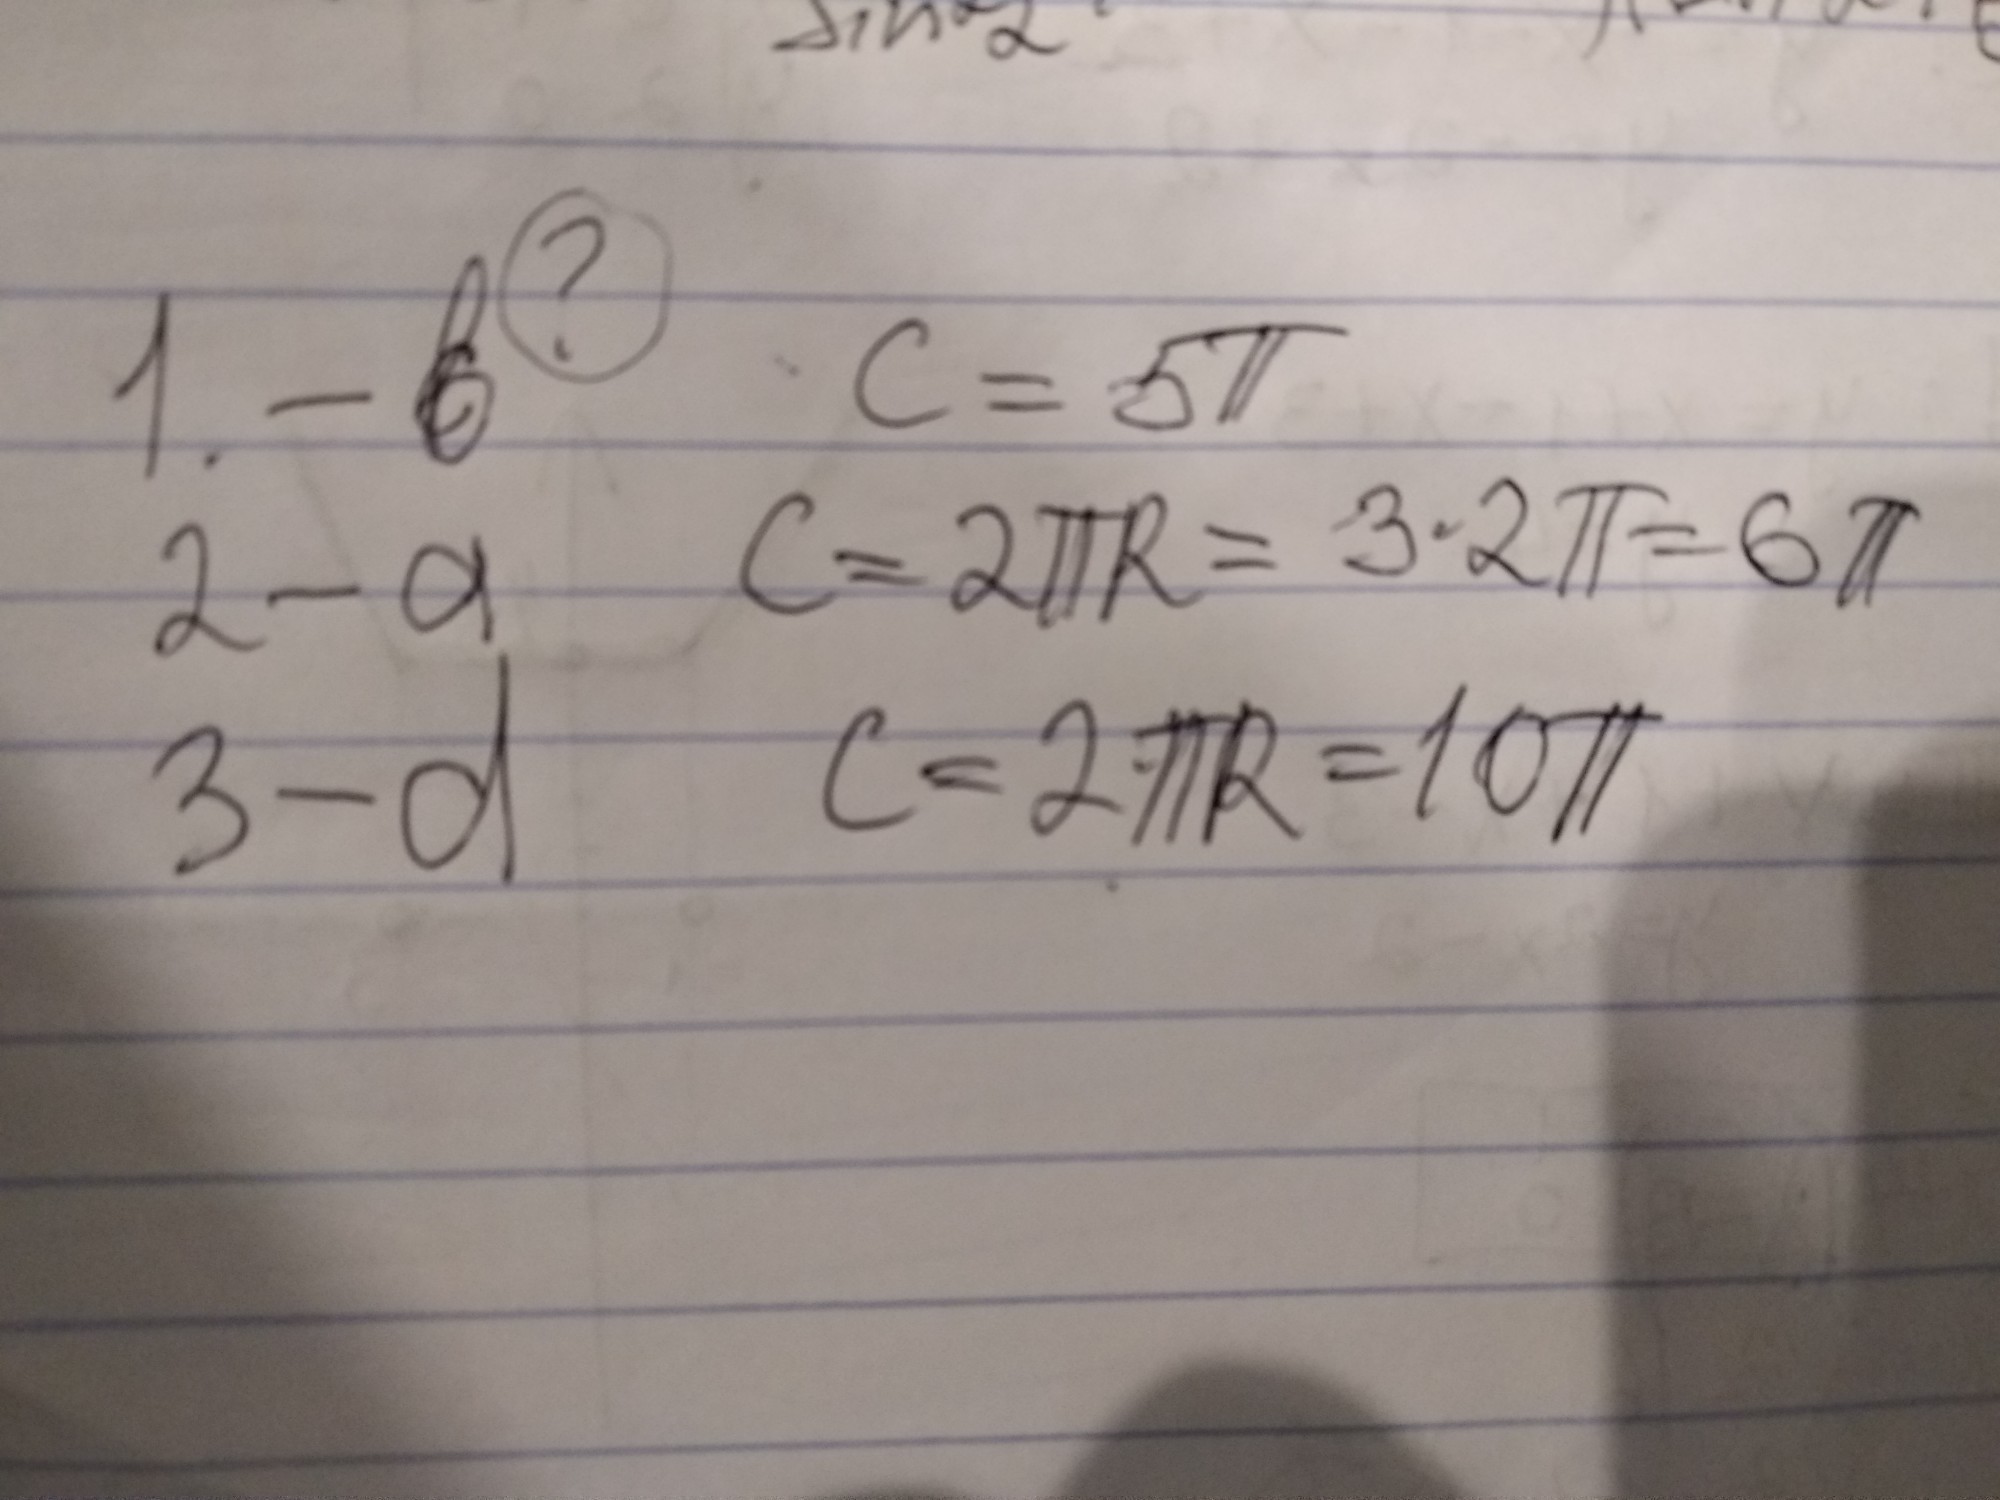 sin 2
1. - b ? C = 5π
2 - a C = 2πR = 3·2π = 6π
3 - d C = 2πR = 10π